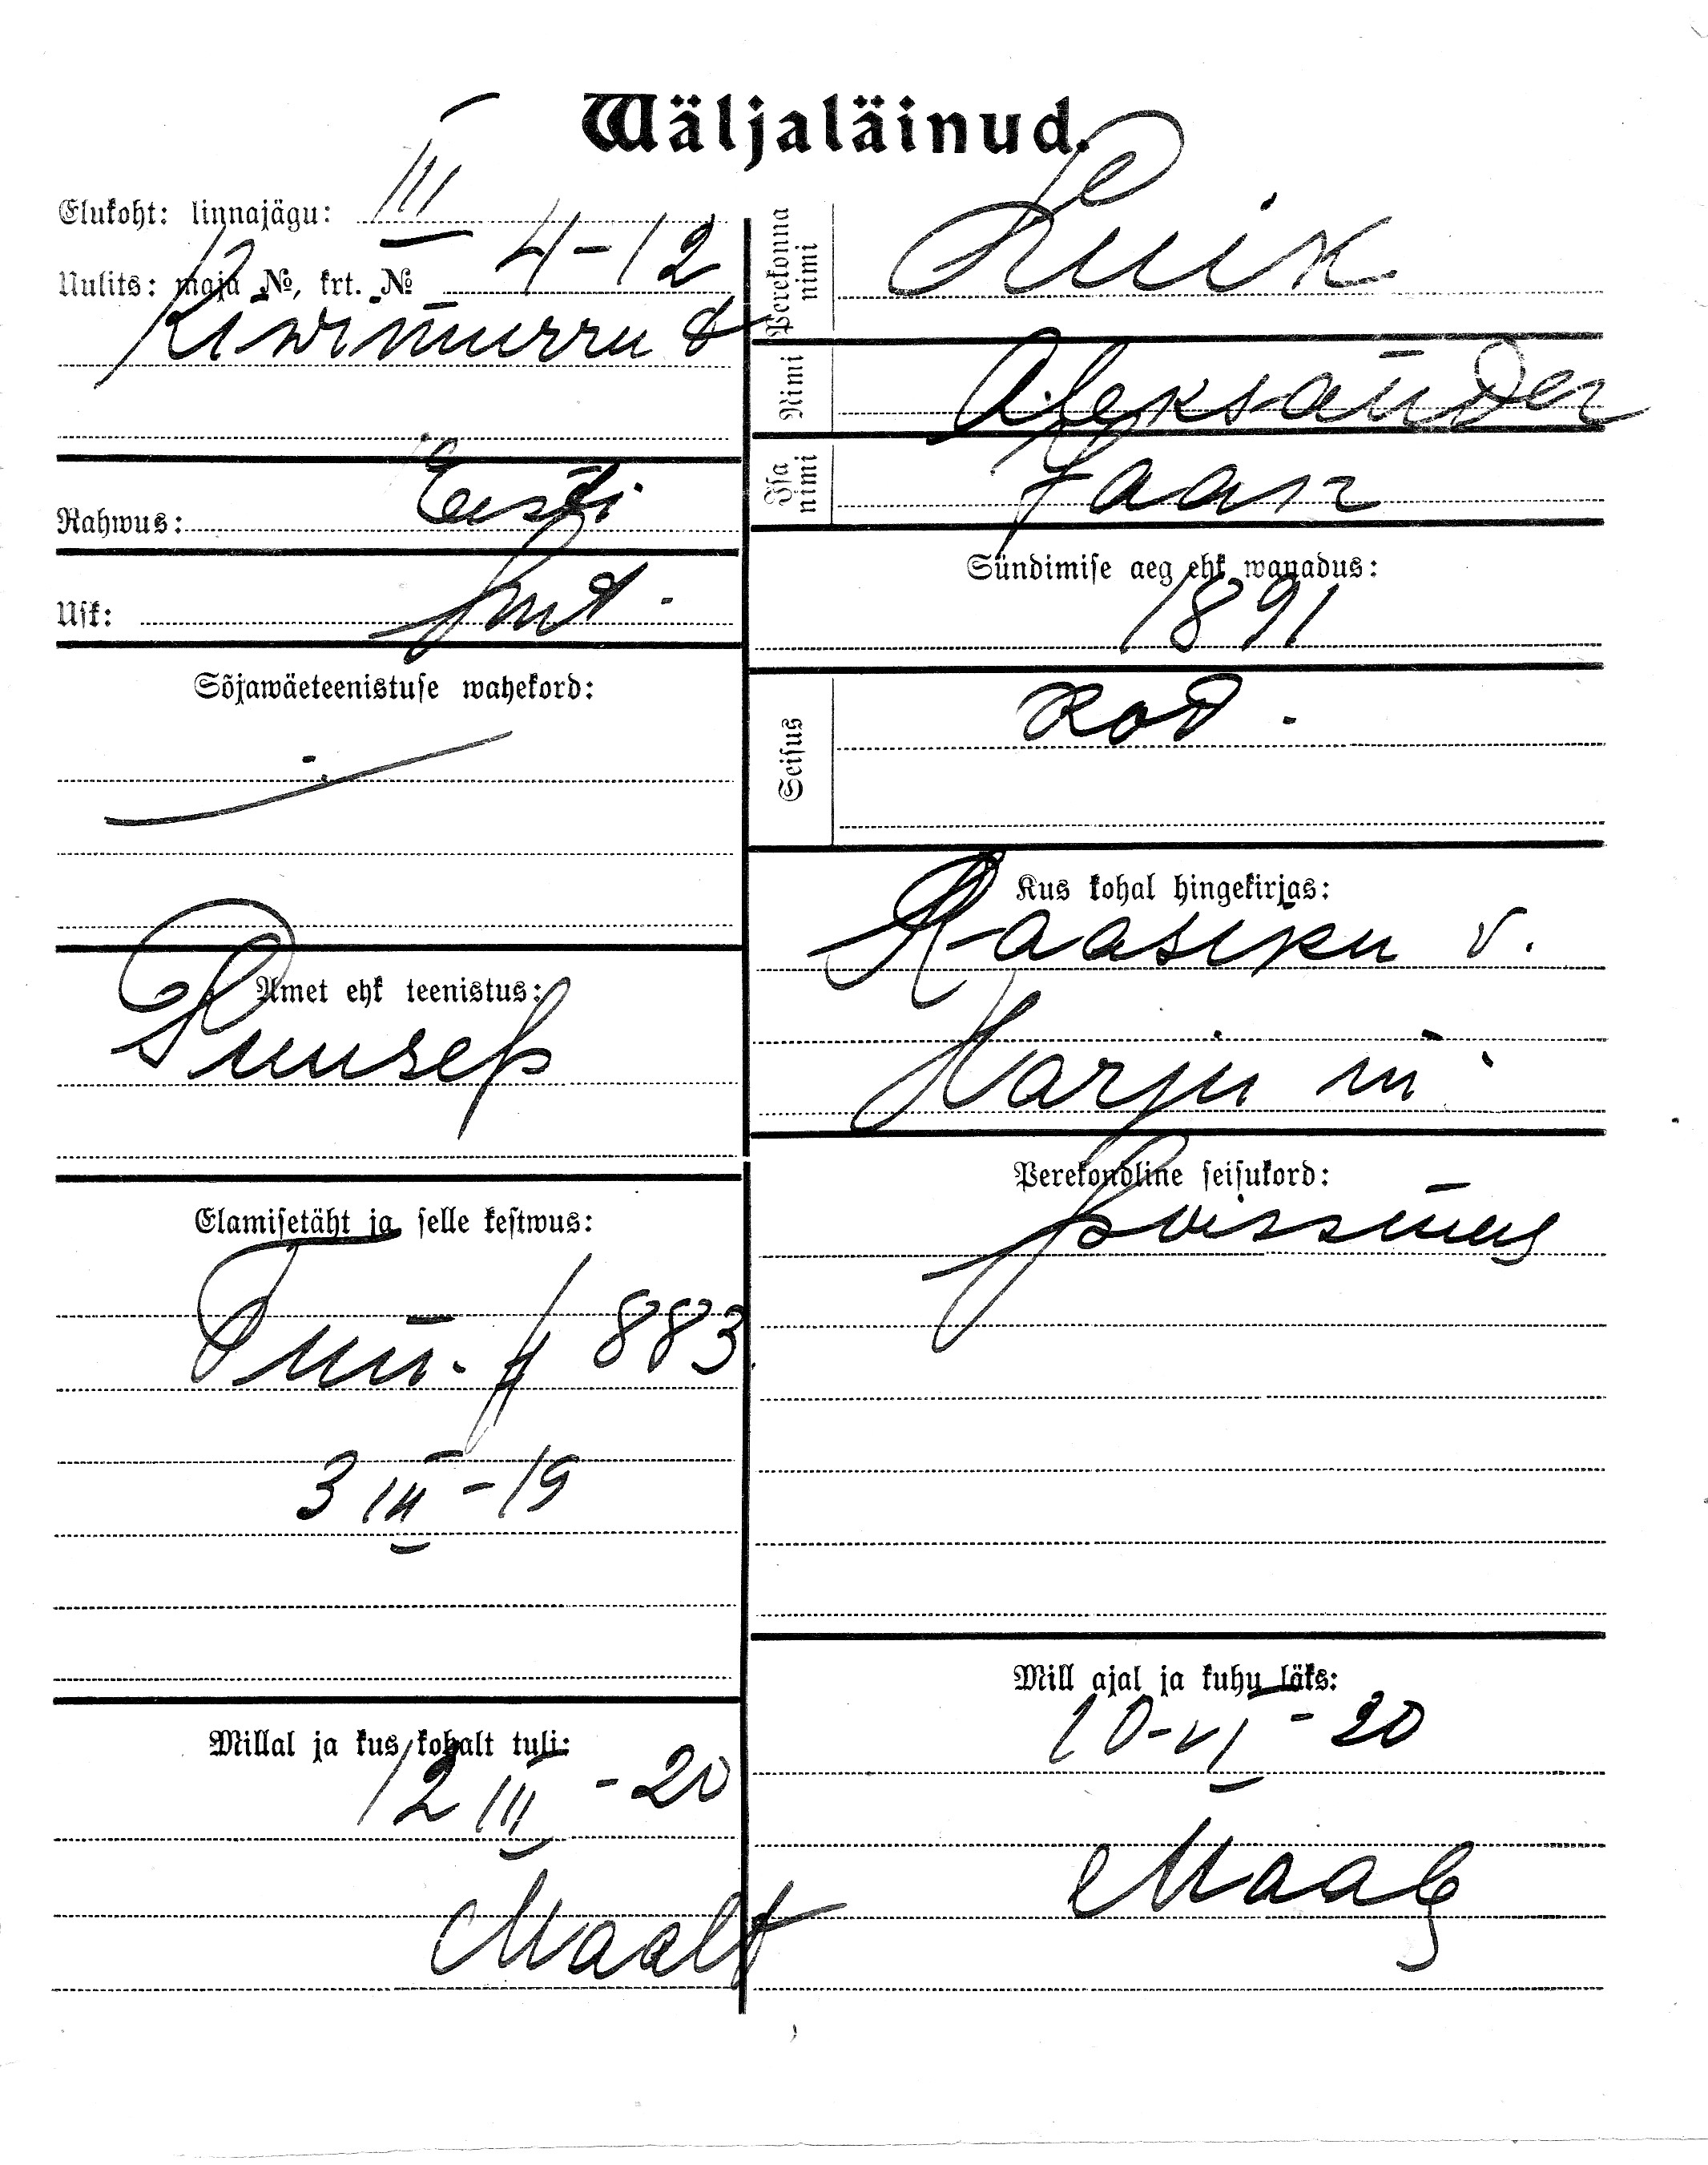 Wäljaläinud.
Elukoht: linnajägu: III
Uulits: maja №, krt. № 4-12
Kiwimurru t
Rahwus: Eesti
Usk: lut.
Sõjawäeteenistuse wahekord:
Amet ehk teenistus:
Puusep
Elamisetäht ja selle kestwus:
883
3 III - 19
Millal ja kus kohalt tuli:
12 III - 20
Maalt
Perekonna nimi
Nimi Aleksander
Isa nimi Jaan
Sündimise aeg ehk wanadus:
1891
Seisus kod.
Kus kohal hingekirjas:
Raasiku v.
Harju m.
Perekondline seisukord:
poissmees
Mill ajal ja kuhu läks:
10-VI-20
Maale